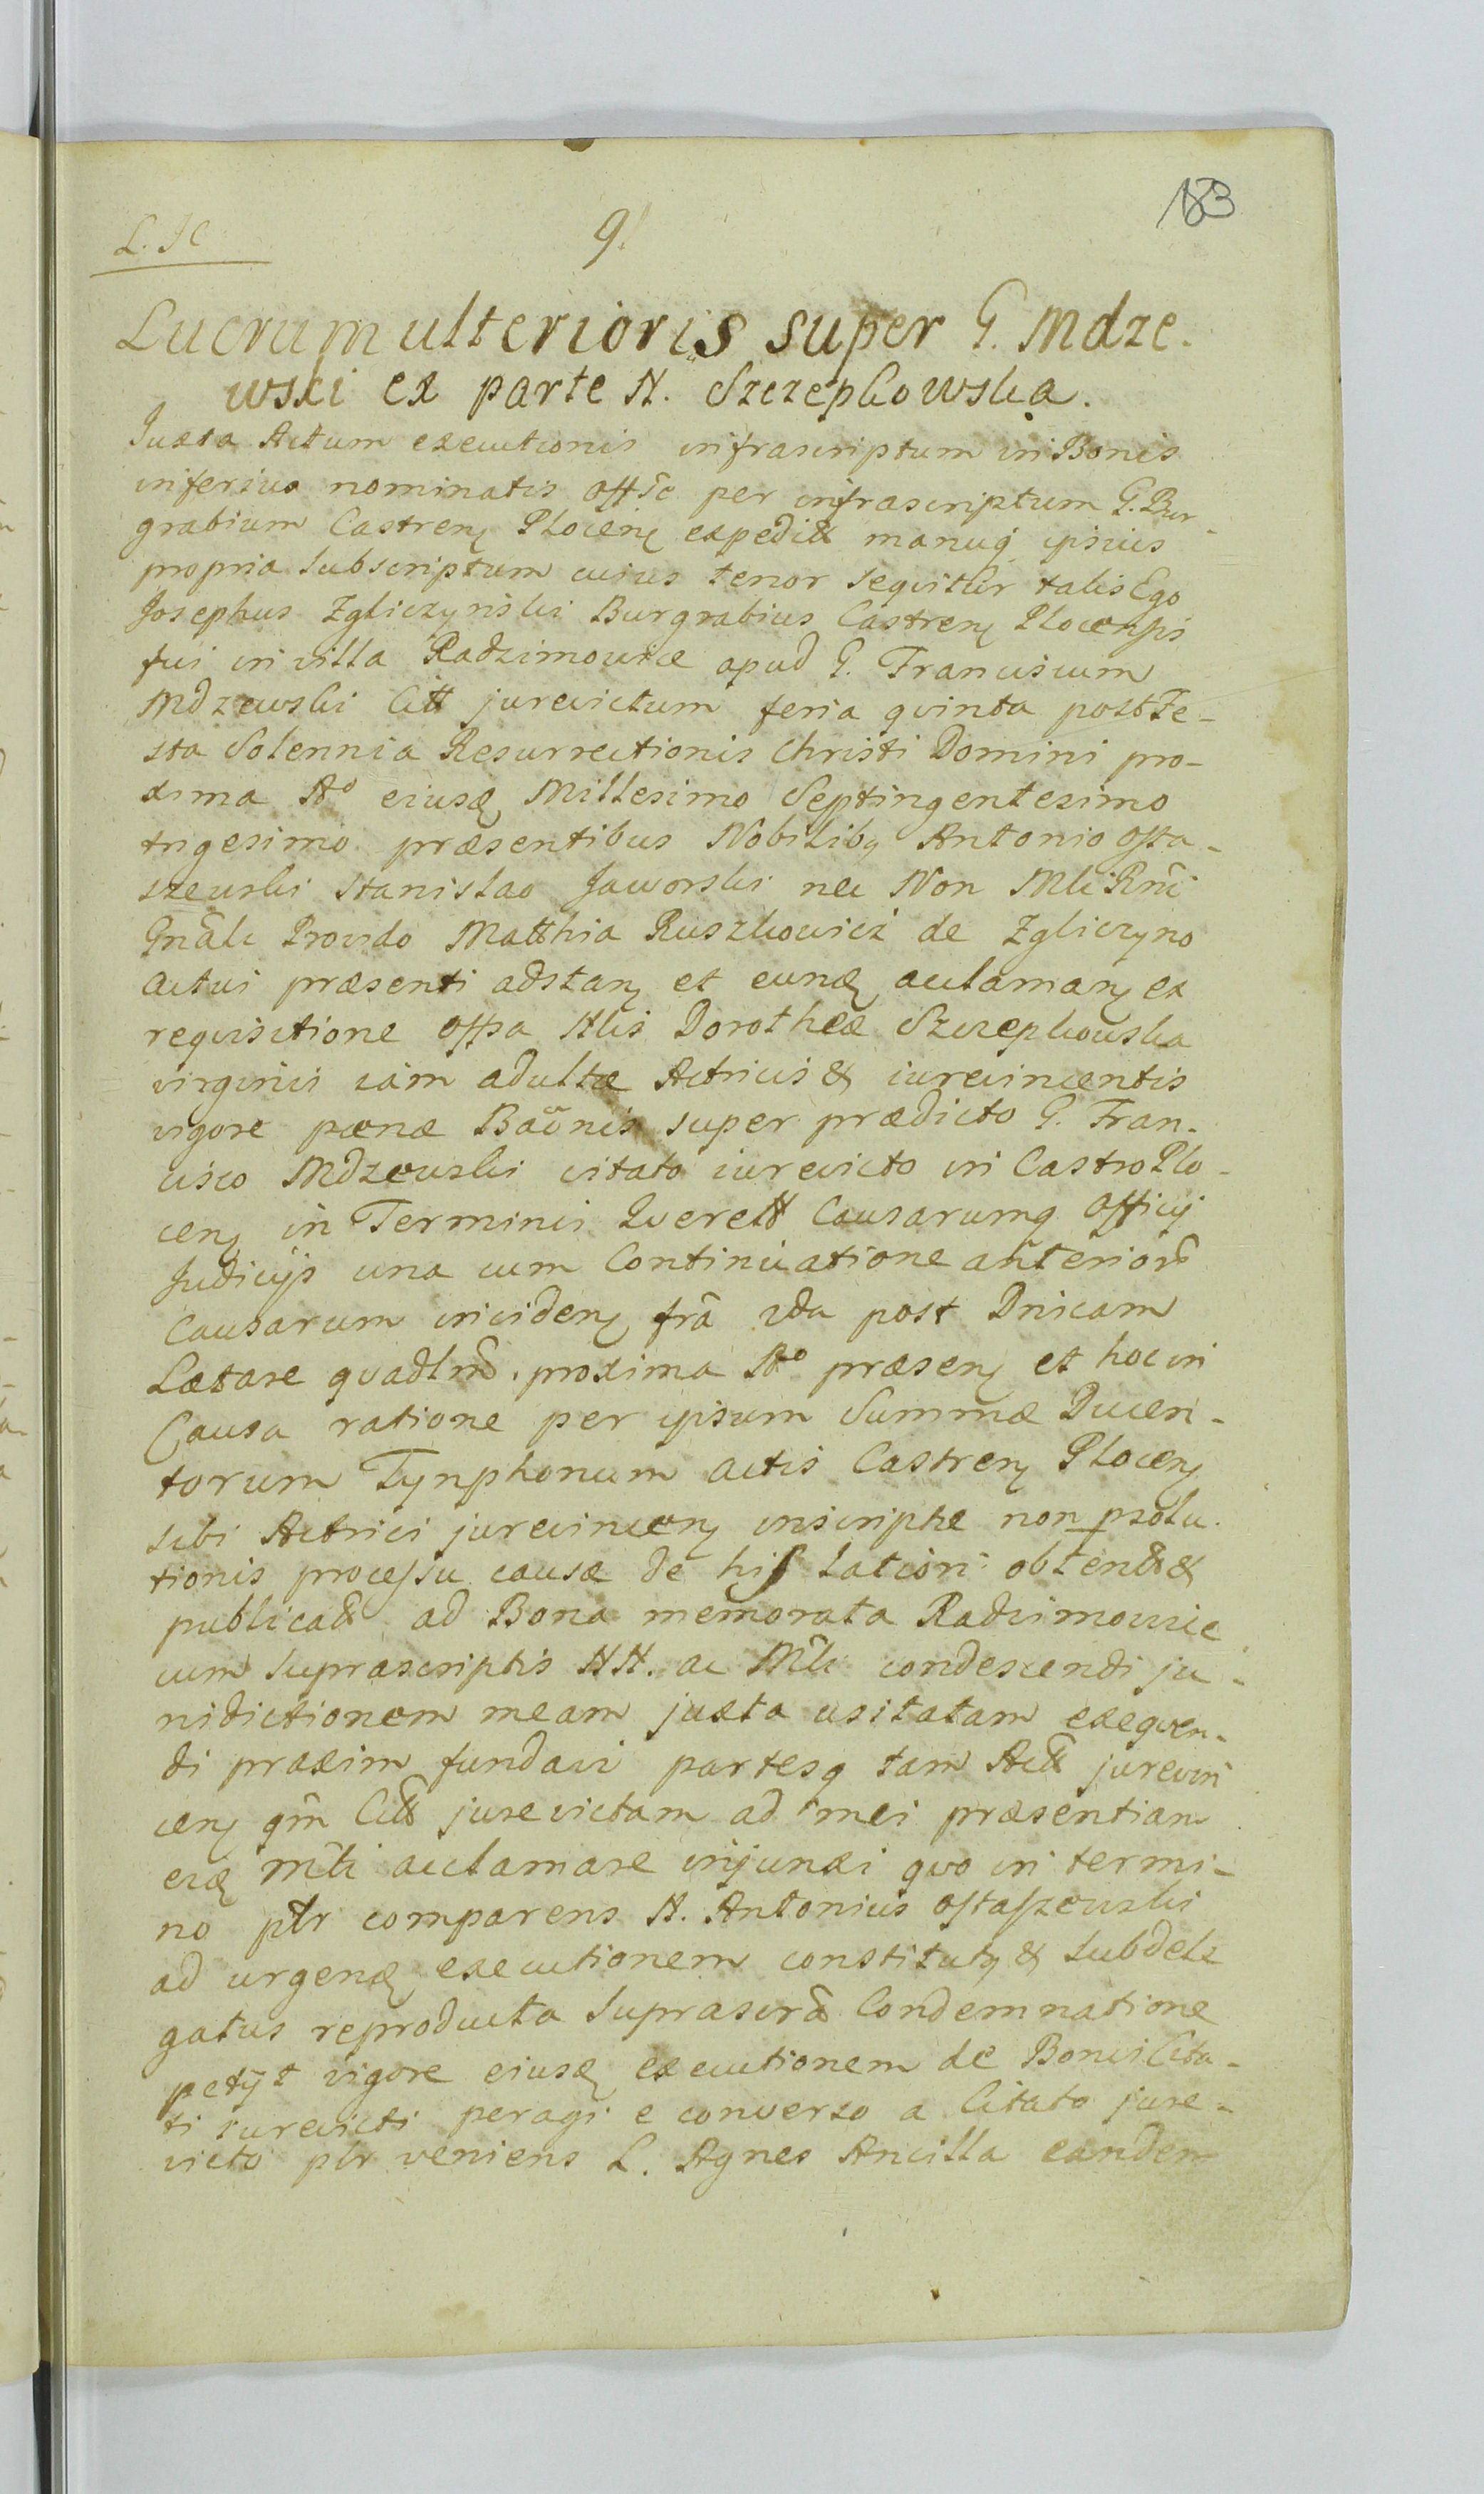 183
L. JC
9.
Lucrum ulterioris super G. Mdze-
wski ex parte N. Szczepkowska.
Juxta Actum executionis infrascriptum in Bonis
inferius nominatis offic per infrascriptum G. Bur-
grabium Castren Plocen expedit manuq ipsius
propria subscriptum cuius tenor sequitur talis Ego
Josephus Zgliczynski Burgrabius Castren Plocensis
fui in villa Radzimowice apud G. Franciscum
Mdzewski Citt jurevictum feria qvinta post Fe-
sta Solennia Resurrectionis Christi Domini pro-
xima Ao eiusd Millesimo Septingentesimo
trigesimo præsentibus Nobilibq Antonio Osta-
szewski Stanislao Jaworski nec Non Mli Rni
Gnãli Provido Matthia Ruszkowicz de Zgliczyno
actui præsenti adstan et eund acclaman ex
requisitione offsa Nlis Dorotheæ Szczepkowska
virginis iam adultæ Actricis & iurevincentis
vigore pœnæ Baõnis super prædicto G. Fran-
cisco Mdzewski citato iurevicto in Castro Plo-
cen in Terminis Qverell Causarumq Officij
Judicijs una cum Continuatione anterior
Causarum inciden frã 2da post Dnicam
Lætare qvadlm. proxima Ao præsen et hoc in
Causa ratione per ipsum Summæ Ducen-
torum Tynphonum actis Castren Plocen
sibi Actrici jurevincen inscriptæ non psolu-
tionis processu causæ de his lation obtent &
publicat ad Bona memorata Radzimowice
cum suprascriptis NN. ac Mli condescendi ju-
risdictionem meam juxta usitatam exeqven-
di praxim fundavi partesq tam Act jurevin
cen qm Citt jurevictam ad mei præsentiam
eid Mli acclamare injunxi qvo in termi-
no ptr comparens N. Antonius Ostaszewski
ad urgend executionem constitutq & subdele
gatus reproducta suprascra Condemnatione
petijt vigore eiusd executionem de Bonis Cita-
ti iurevicti peragi e converso a Citato jure-
victo ptr veniens L. Agnes Ancilla eandem